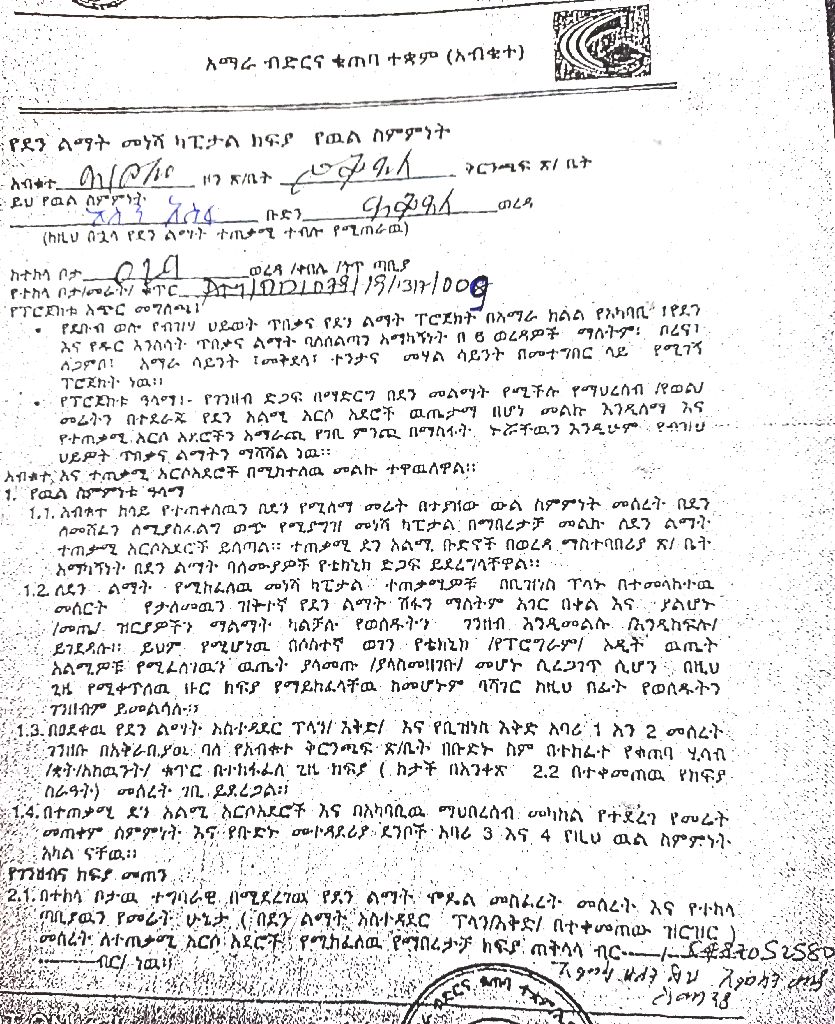 አማራ ብድርና ቁጠባ ተቋም (አብቁተ)
የደን ልማት መነሻ ካፒታል ክፍያ የዉል ስምምነት
አብቁተ ዞን ጽ/ቤት መቅደላ ቅርንጫፍ ጽ/ ቤት
ይህ የዉል ስምምነት
ቡድን መቅደላ ወረዳ
(ከዚህ በኋላ የደን ልማት ተጠቃሚ ተብሎ የሚጠራዉ)
ከተከላ ቦታ ወረዳ /ቀበሌ /ንኡስ ጣቢያ
የተከላ ቦታ/መሬት/ ቁጥር /19/1317/009
የፕሮጀክቱ አጭር መግለጫ፤
• የደቡብ ወሎ የብዝሃ ህይወት ጥበቃና የደን ልማት ፕሮጀክት በአማራ ክልል የአካባቢ ፣የደን
እና የዱር እንስሳት ጥበቃና ልማት ባለስልጣን አማካኝነት በ 6 ወረዳዎች ማለትም፤ ቦረና፣
ለጋምቦ፣ አማራ ሳይንት ፣መቅደላ፣ ተንታና መሃል ሳይንት በመተግበር ላይ የሚገኝ
ፕሮጀክት ነዉ፡፡
• የፕሮጀክቱ ዓላማ፤- የገንዘብ ድጋፍ በማድርግ በደን መልማት የሚችሉ የማህረሰብ /የወል/
መሬትን በተደራጁ የደን አልሚ አርሶ አደሮች ዉጤታማ በሆነ መልኩ እንዲለማ እና
የተጠቃሚ አርሶ አደሮችን አማራጪ የገቢ ምንጪ በማስፋት ኑሯቸዉን እንዲሁም የብዝሃ
ህይዎት ጥበቃና ልማትን ማሻሻል ነዉ፡፡
አብቁተ እና ተጠቃሚ አርሶአደሮች በሚከተለዉ መልኩ ተዋዉለዋል፡፡
1. የዉል ስምምነቱ ዓላማ
1.1. አብቁተ ከላይ የተጠቀሰዉን በደን የሚለማ መሬት በተያዘው ውል ስምምነት መሰረት በደን
ለመሸፈን ለሚያስፈልግ ወጭ የሚያግዝ መነሻ ካፒታል በማበረታቻ መልኩ ለደን ልማት
ተጠቃሚ አርሶአደሮች ይሰጣል፡፡ ተጠቃሚ ደን አልሚ ቡድኖች በወረዳ ማስተባበሪያ ጽ/ ቤት
አማካኝነት በደን ልማት ባለሙያዎች የቴክኒክ ድጋፍ ይደረግላቸዋል፡፡
1.2. ለደን ልማት የሚከፈለዉ መነሻ ካፒታል ተጠቃሚዎቹ በቢዝነስ ፕላኑ በተመላከተዉ
መሰርት የታለመዉን ዝቅተኛ የደን ልማት ሽፋን ማለትም አገር በቀል እና ያልሆኑ
/መጤ/ ዝርያዎችን ማልማት ካልቻሉ የወሰዱትን ገንዘብ እንዲመልሱ /እንዲከፍሉ/
ይገደዳሉ፡፡ ይህም የሚሆነዉ በሶስተኛ ወገን የቴክኒክ /የፕሮግራም/ ኦዲት ዉጤት
አልሚዎቹ የሚፈለገዉን ዉጤት ያላመጡ /ያላስመዘገቡ/ መሆኑ ሲረጋገጥ ሲሆን በዚህ
ጊዜ የሚቀጥለዉ ዙር ክፍያ የማይከፈላቸዉ ከመሆኑም ባሻገር ከዚህ በፊት የወሰዱትን
ገንዘብም ይመልሳሉ፡፡
1.3. በፀደቀዉ የደን ልማት አስተዳደር ፕላን/ እቅድ/ እና የቢዝነስ እቅድ አባሪ 1 እን 2 መሰረት
ገንዘቡ በአቅራቢያዉ ባለ የአብቁተ ቅርንጫፍ ጽ/ቤት በቡድኑ ስም በተከፈተ የቁጠባ ሂሳብ
/ቋት/አካዉንት/ ቁጥር በተከፋፈለ ጊዜ ክፍያ ( ከታች በአንቀጽ 2.2 በተቀመጠዉ የክፍያ
ስራዓት) መሰረት ገቢ ይደረጋል፡፡
1.4. በተጠቃሚ ደን አልሚ አርሶአደሮች እና በአካባቢዉ ማህበረሰብ መካከል የተደረገ የመሬት
መጠቀም ስምምነት እና የቡድኑ መተዳደሪያ ደንቦች አባሪ 3 እና 4 የዚህ ዉል ስምምነት
አካል ናቸዉ፡፡
የገንዘብና ክፍያ መጠን
2.1. በተከላ ቦታዉ ተግባራዊ በሚደረገዉ የደን ልማት ሞዴል መስፈረት መሰረት እና የተከላ
ጣቢያዉን የመሬት ሁኔታ ( በደን ልማት አስተዳደር ፕላን/እቅድ/ በተቀመጠው ዝርዝር )
መሰረት ለተጠቃሚ አርሶ አደሮች የሚከፈለዉ የማበረታቻ ክፍያ ጠቅላላ ብር-----/-
--------ብር/ ነዉ፡፡
ብድርና ቁጠባ ተቋም